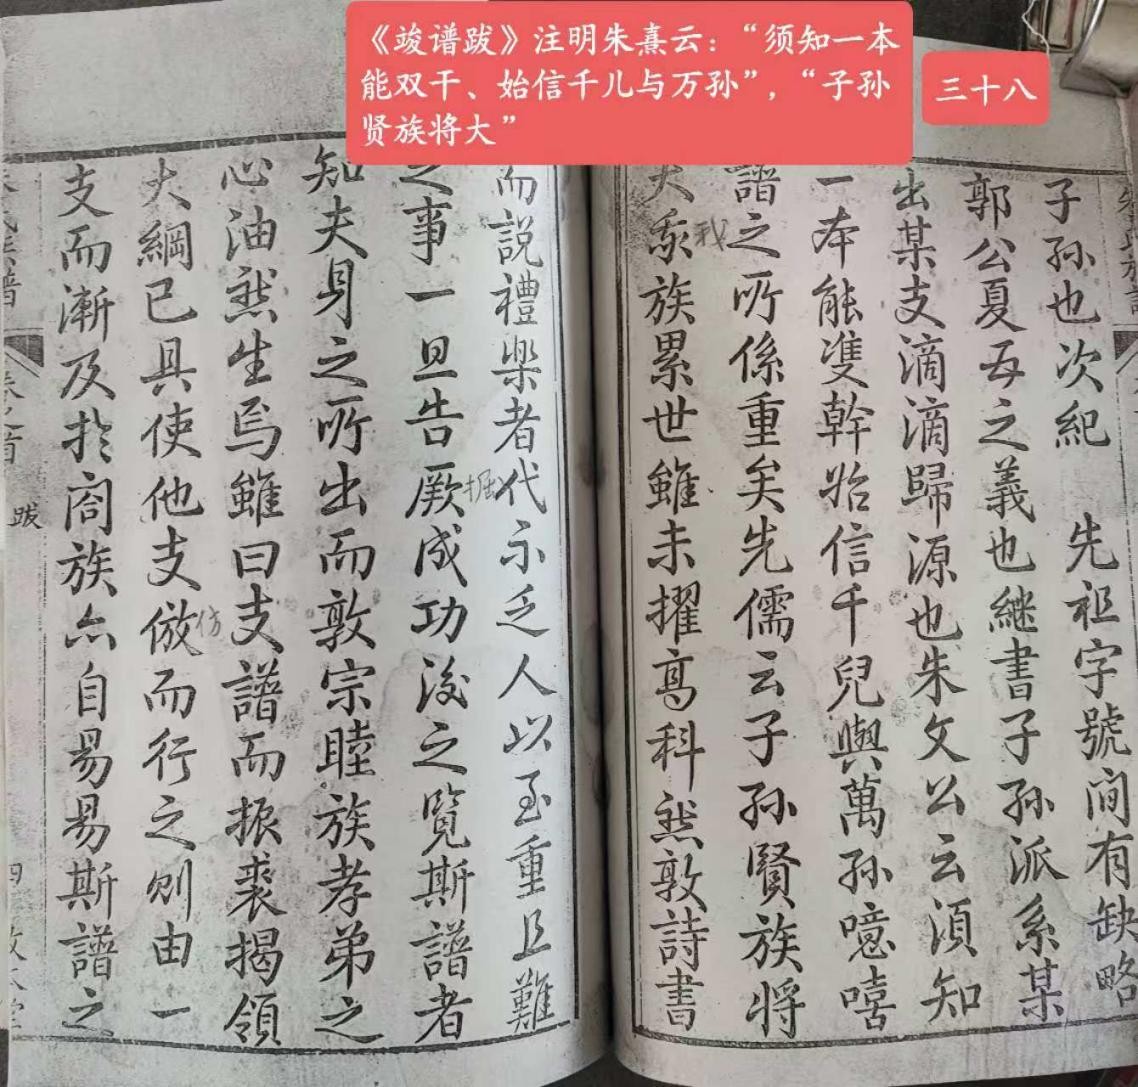 《竣谱跋》注明朱熹云：“须知一本
能双干、始信千儿与万孙”，“子孙
贤族将大”
三十八
子孙也次紀　先祖字號间有缺略
郭公夏五之義也継書子孫派系某
出某支滴滴歸源也朱文公云須知
一本能雙幹始信千兒與萬孫噫嘻
譜之所係重矣先儒云子孙賢族将
大我族累世雖未擢髙科然敦詩書
我
而説禮樂者代不乏人以至重且難
之事一旦告厥成功後之覧斯譜者
知夫身之所出而敦宗睦族孝弟之
心油然生焉雖曰支譜而振裘揭領
大綱已具使他支倣而行之則由一
仿
支而漸及於阖族亦自易易斯譜之
跋